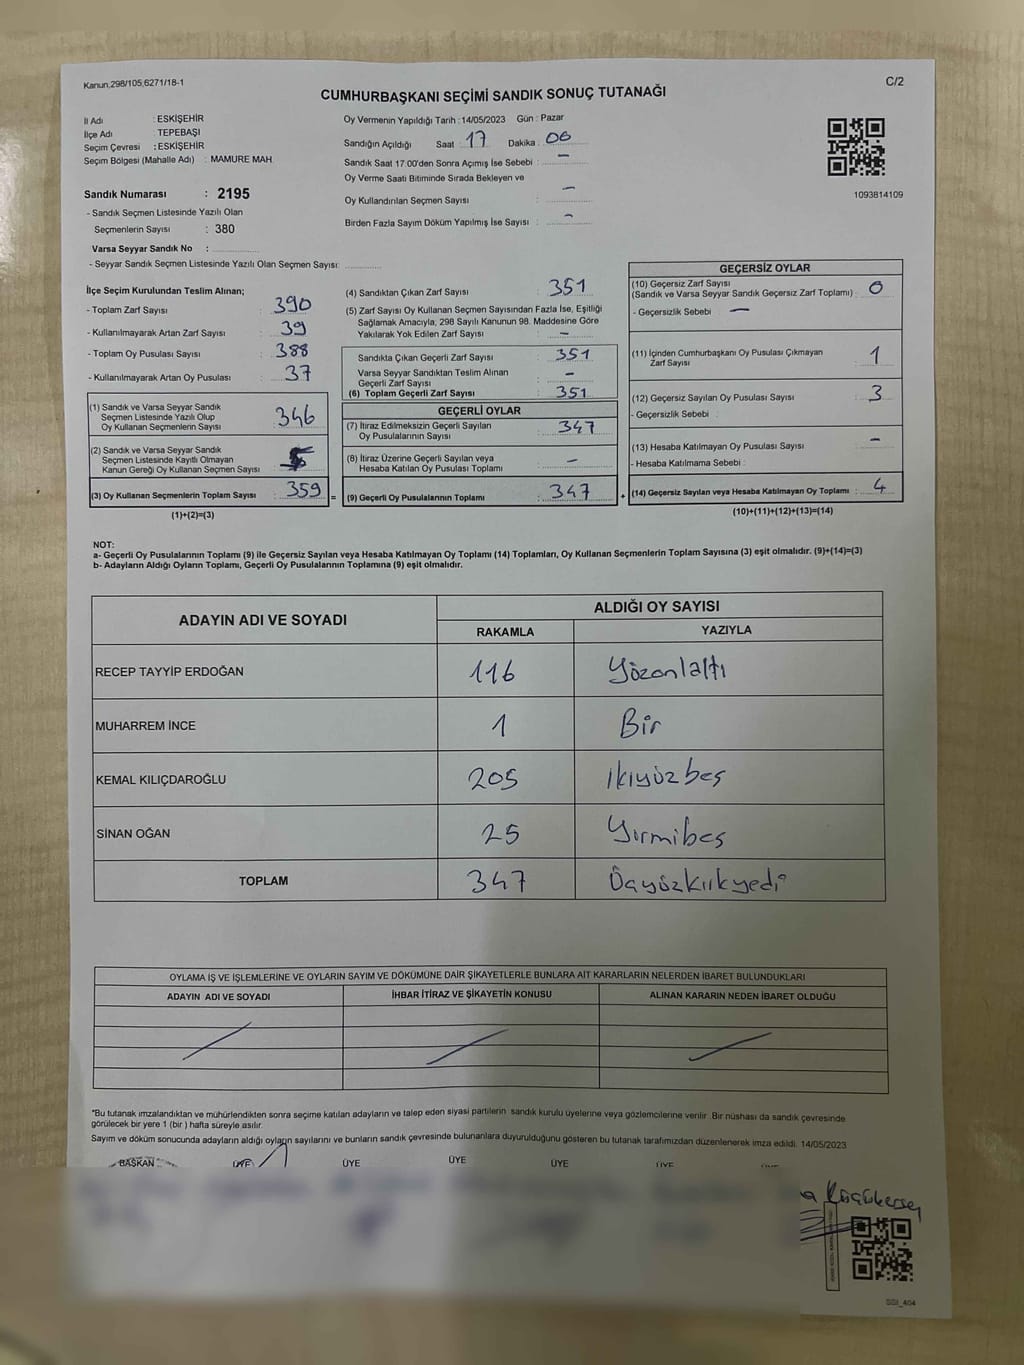 Kanun;298/105;6271/18-1
C/2
CUMHURBAŞKANI SEÇİMİ SANDIK SONUÇ TUTANAĞI
İl Adı : ESKİŞEHİR
İlçe Adı : TEPEBAŞI
Seçim Çevresi : ESKİŞEHİR
Seçim Bölgesi (Mahalle Adı) : MAMURE MAH.
Sandık Numarası : 2195
- Sandık Seçmen Listesinde Yazılı Olan
Seçmenlerin Sayısı : 380
Varsa Seyyar Sandık No :
- Seyyar Sandık Seçmen Listesinde Yazılı Olan Seçmen Sayısı:
Oy Vermenin Yapıldığı Tarih : 14/05/2023 Gün : Pazar
Sandığın Açıldığı Saat : 17 Dakika : 06
Sandık Saat 17:00'den Sonra Açımış İse Sebebi : —
Oy Verme Saati Bitiminde Sırada Bekleyen ve
Oy Kullandırılan Seçmen Sayısı : —
Birden Fazla Sayım Döküm Yapılmış İse Sayısı : -
1093814109
İlçe Seçim Kurulundan Teslim Alınan;
- Toplam Zarf Sayısı : 390
- Kullanılmayarak Artan Zarf Sayısı : 39
- Toplam Oy Pusulası Sayısı : 388
- Kullanılmayarak Artan Oy Pusulası : 37
(1) Sandık ve Varsa Seyyar Sandık
Seçmen Listesinde Yazılı Olup
Oy Kullanan Seçmenlerin Sayısı : 346
(2) Sandık ve Varsa Seyyar Sandık
Seçmen Listesinde Kayıtlı Olmayan
Kanun Gereği Oy Kullanan Seçmen Sayısı : 5
(3) Oy Kullanan Seçmenlerin Toplam Sayısı : 359 =
(1)+(2)=(3)
(4) Sandıktan Çıkan Zarf Sayısı : 351
(5) Zarf Sayısı Oy Kullanan Seçmen Sayısından Fazla İse, Eşitliği
Sağlamak Amacıyla, 298 Sayılı Kanunun 98. Maddesine Göre
Yakılarak Yok Edilen Zarf Sayısı : —
Sandıkta Çıkan Geçerli Zarf Sayısı : 351
Varsa Seyyar Sandıktan Teslim Alınan
Geçerli Zarf Sayısı : —
(6) Toplam Geçerli Zarf Sayısı : 351
GEÇERLİ OYLAR
(7) İtiraz Edilmeksizin Geçerli Sayılan
Oy Pusulalarının Sayısı : 347
(8) İtiraz Üzerine Geçerli Sayılan veya
Hesaba Katılan Oy Pusulası Toplamı : —
(9) Geçerli Oy Pusulalarının Toplamı : 347 +
GEÇERSİZ OYLAR
(10) Geçersiz Zarf Sayısı
(Sandık ve Varsa Seyyar Sandık Geçersiz Zarf Toplamı) : 0
- Geçersizlik Sebebi : —
(11) İçinden Cumhurbaşkanı Oy Pusulası Çıkmayan
Zarf Sayısı : 1
(12) Geçersiz Sayılan Oy Pusulası Sayısı : 3
- Geçersizlik Sebebi :
(13) Hesaba Katılmayan Oy Pusulası Sayısı : —
- Hesaba Katılmama Sebebi :
(14) Geçersiz Sayılan veya Hesaba Katılmayan Oy Toplamı : 4
(10)+(11)+(12)+(13)=(14)
NOT:
a- Geçerli Oy Pusulalarının Toplamı (9) ile Geçersiz Sayılan veya Hesaba Katılmayan Oy Toplamı (14) Toplamları, Oy Kullanan Seçmenlerin Toplam Sayısına (3) eşit olmalıdır. (9)+(14)=(3)
b- Adayların Aldığı Oyların Toplamı, Geçerli Oy Pusulalarının Toplamına (9) eşit olmalıdır.
ADAYIN ADI VE SOYADI
ALDIĞI OY SAYISI
RAKAMLA YAZIYLA
RECEP TAYYİP ERDOĞAN 116 Yüzonlaltı
MUHARREM İNCE 1 Bir
KEMAL KILIÇDAROĞLU 205 ikiyüzbeş
SİNAN OĞAN 25 Yirmibeş
TOPLAM 347 Üçyüzkırkyedi
OYLAMA İŞ VE İŞLEMLERİNE VE OYLARIN SAYIM VE DÖKÜMÜNE DAİR ŞİKAYETLERLE BUNLARA AİT KARARLARIN NELERDEN İBARET BULUNDUKLARI
ADAYIN ADI VE SOYADI İHBAR İTİRAZ VE ŞİKAYETİN KONUSU ALINAN KARARIN NEDEN İBARET OLDUĞU
"Bu tutanak imzalandıktan ve mühürlendikten sonra seçime katılan adayların ve talep eden siyasi partilerin sandık kurulu üyelerine veya gözlemcilerine verilir. Bir nüshası da sandık çevresinde
görülecek bir yere 1 (bir) hafta süreyle asılır.
Sayım ve döküm sonucunda adayların aldığı oyların sayılarını ve bunların sandık çevresinde bulunanlara duyurulduğunu gösteren bu tutanak tarafımızdan düzenlenerek imza edildi. 14/05/2023
BAŞKAN ÜYE ÜYE ÜYE ÜYE ÜYE